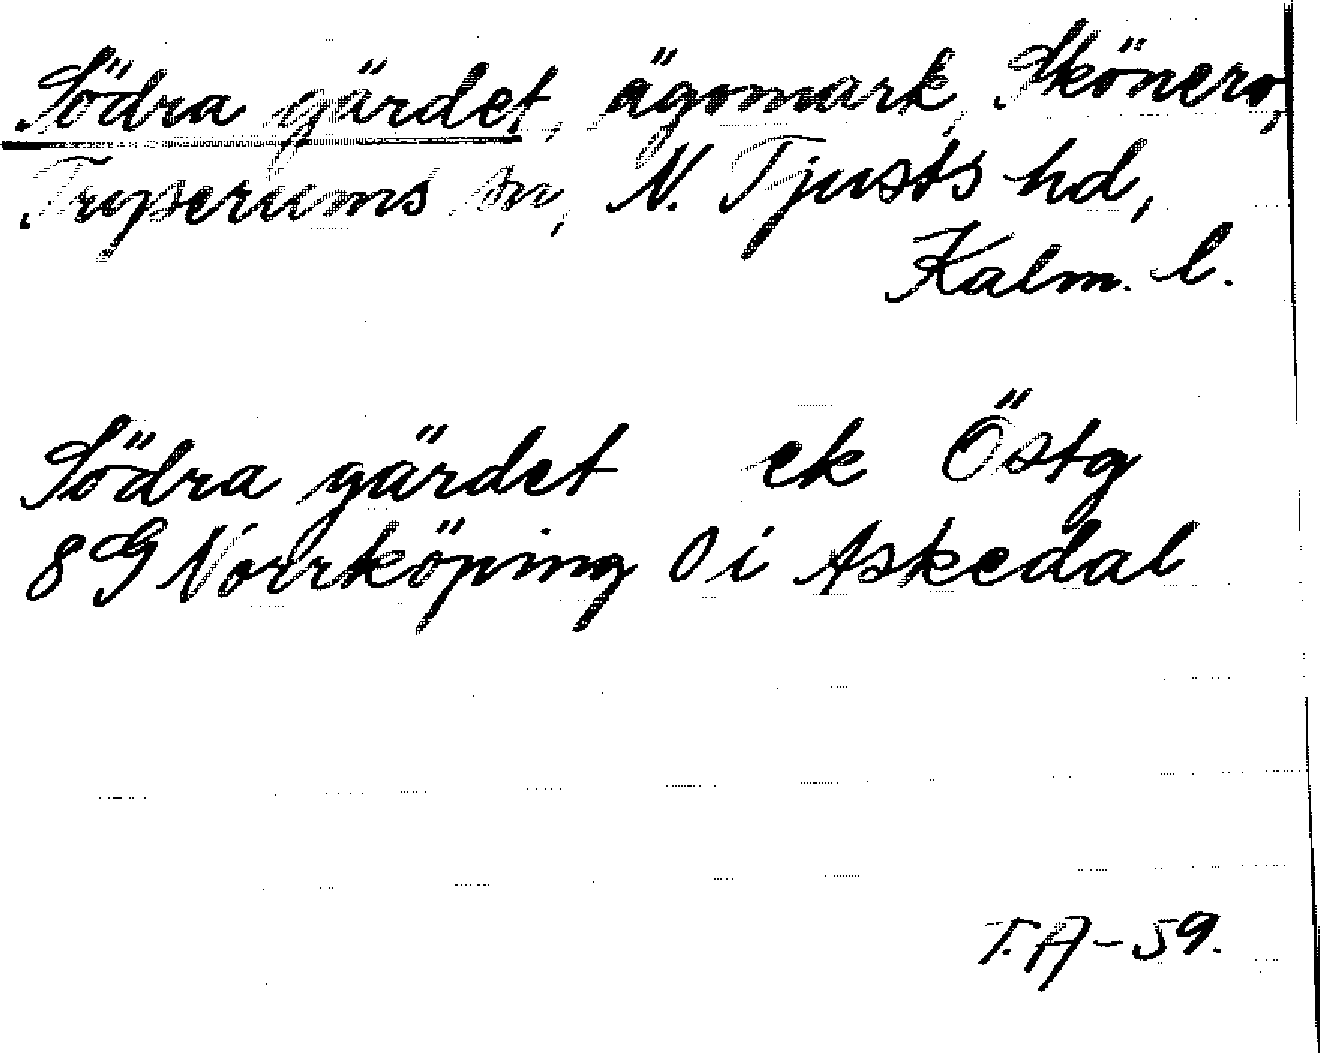 Södra gärdet, ägomark, Skönero,
Tryserums sn, N. Tjusts hd,
Kalm. l.
Södra gärdet ek Östg
8G Norrköping 0 i Askedal
T.A-59.